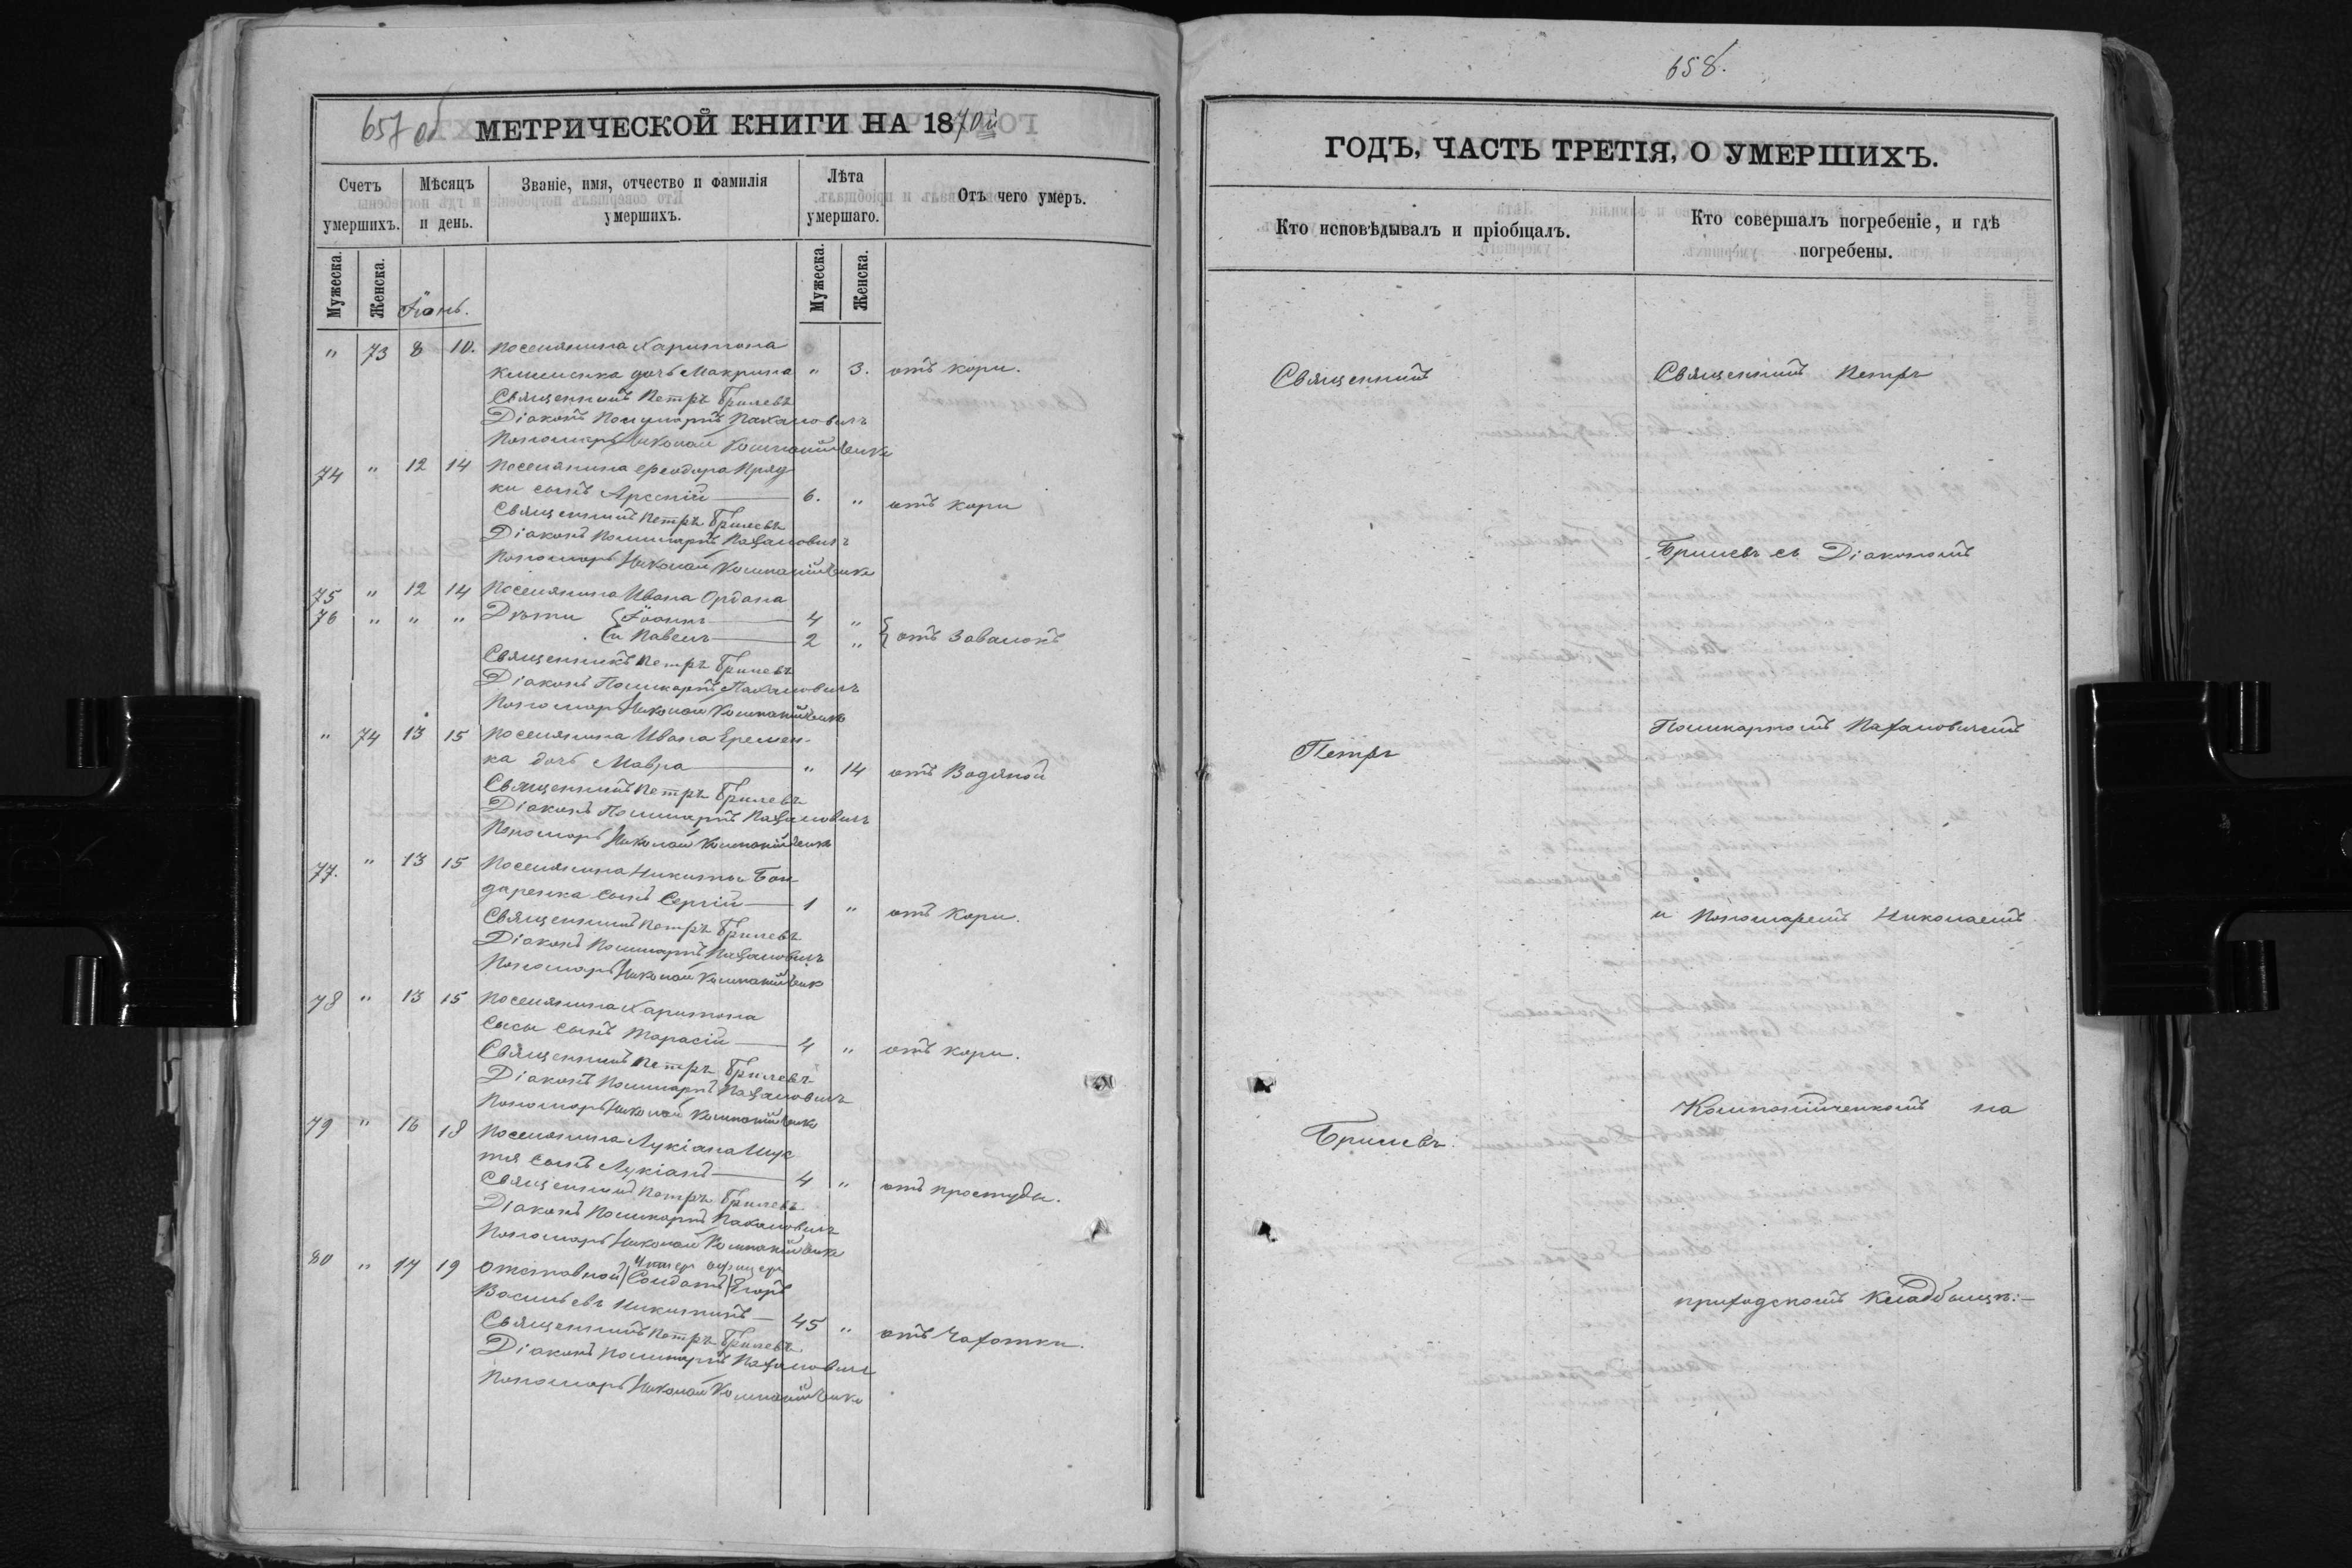 657 об МЕТРИЧЕСКОЙ КНИГИ НА 1870й
Счетъ умершихъ.
Мѣсяцъ и день.
Званіе, имя, отчество и фамилія умершихъ.
Лѣта умершаго.
Отъ чего умеръ.
Мужеска.
Женска.
Іюнь.
Мужеска.
Женска.
" 73 8 10. Поселянина Харитона
Клименка дочь Макрина " 3. отъ кори.
Священникъ Петръ Брилевъ
Діаконъ Поликарпъ Пахаловичъ
Пономарь Николай Компанійченко
74 " 12 14 Поселянина Ѳеодора Пряд
ки сынъ Арсеній 6. " отъ кори
Священникъ Петръ Брилевъ
Діаконъ Поликарпъ Пахаловичъ
Пономарь Николай Компанійченко
75 " 12 14 Поселянина Ивана Ордана
76 " " " Дѣти Іоаннъ 4 "
и Павелъ 2 " отъ Завалокъ
Священникъ Петръ Брилевъ
Діаконъ Поликарпъ Пахаловичъ
Пономарь Николай Компанійченко
" 74 13 15 Поселянина Ивана Еремен-
ка дочь Мавра " 14 отъ Водяной
Священникъ Петръ Брилевъ
Діаконъ Поликарпъ Пахаловичъ
Пономарь Николай Компанійченко
77. " 13 15 Поселянина Никиты Бон
даренка сынъ Сергій 1 " отъ Кори.
Священникъ Петръ Брилевъ
Діаконъ Поликарпъ Пахаловичъ
Пономарь Николай Компанійченко
78 " 13 15 Поселянина Харитона
Сысы сынъ Тарасій 4 " отъ кори.
Священникъ Петръ Брилевъ
Діаконъ Поликарпъ Пахаловичъ
Пономарь Николай Компанійченко
79 " 16 18 Поселянина Лукіана
тя сынъ Лукіанъ 4 " отъ простуды.
Священникъ Петръ Брилевъ
Діаконъ Поликарпъ Пахаловичъ
Пономарь Николай Компанійченко
Унтеръ офицеръ
80 " 17 19 Отставной Солдатъ Егоръ
Васильевъ Никитинъ 45 " отъ Чахотки.
Священникъ Петръ Брилевъ
Діаконъ Поликарпъ Пахаловичъ
Пономарь Николай Компанійченко
658.
ГОДЪ, ЧАСТЬ ТРЕТІЯ, О УМЕРШИХЪ.
Кто исповѣдывалъ и пріобщалъ.
Кто совершалъ погребеніе, и гдѣ
погребены.
Священникъ
Петръ
Брилевъ.
Священникъ Петръ
Брилевъ съ Діакономъ
Поликарпомъ Пахаловичемъ
и Пономаремъ Николаемъ
Компанійченкомъ на
приходскомъ Кладбищѣ:-